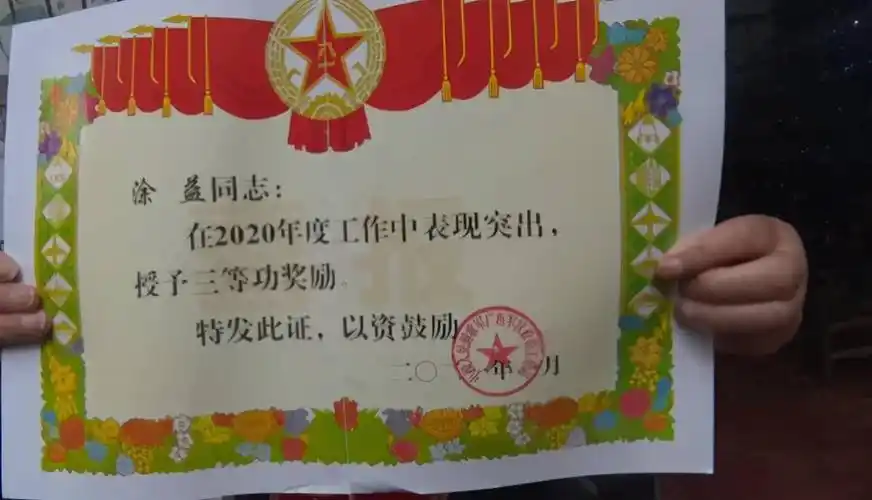 涂 益同志：
在2020年度工作中表现突出，
授予三等功奖励。
特发此证，以资鼓励
二〇一 年 月